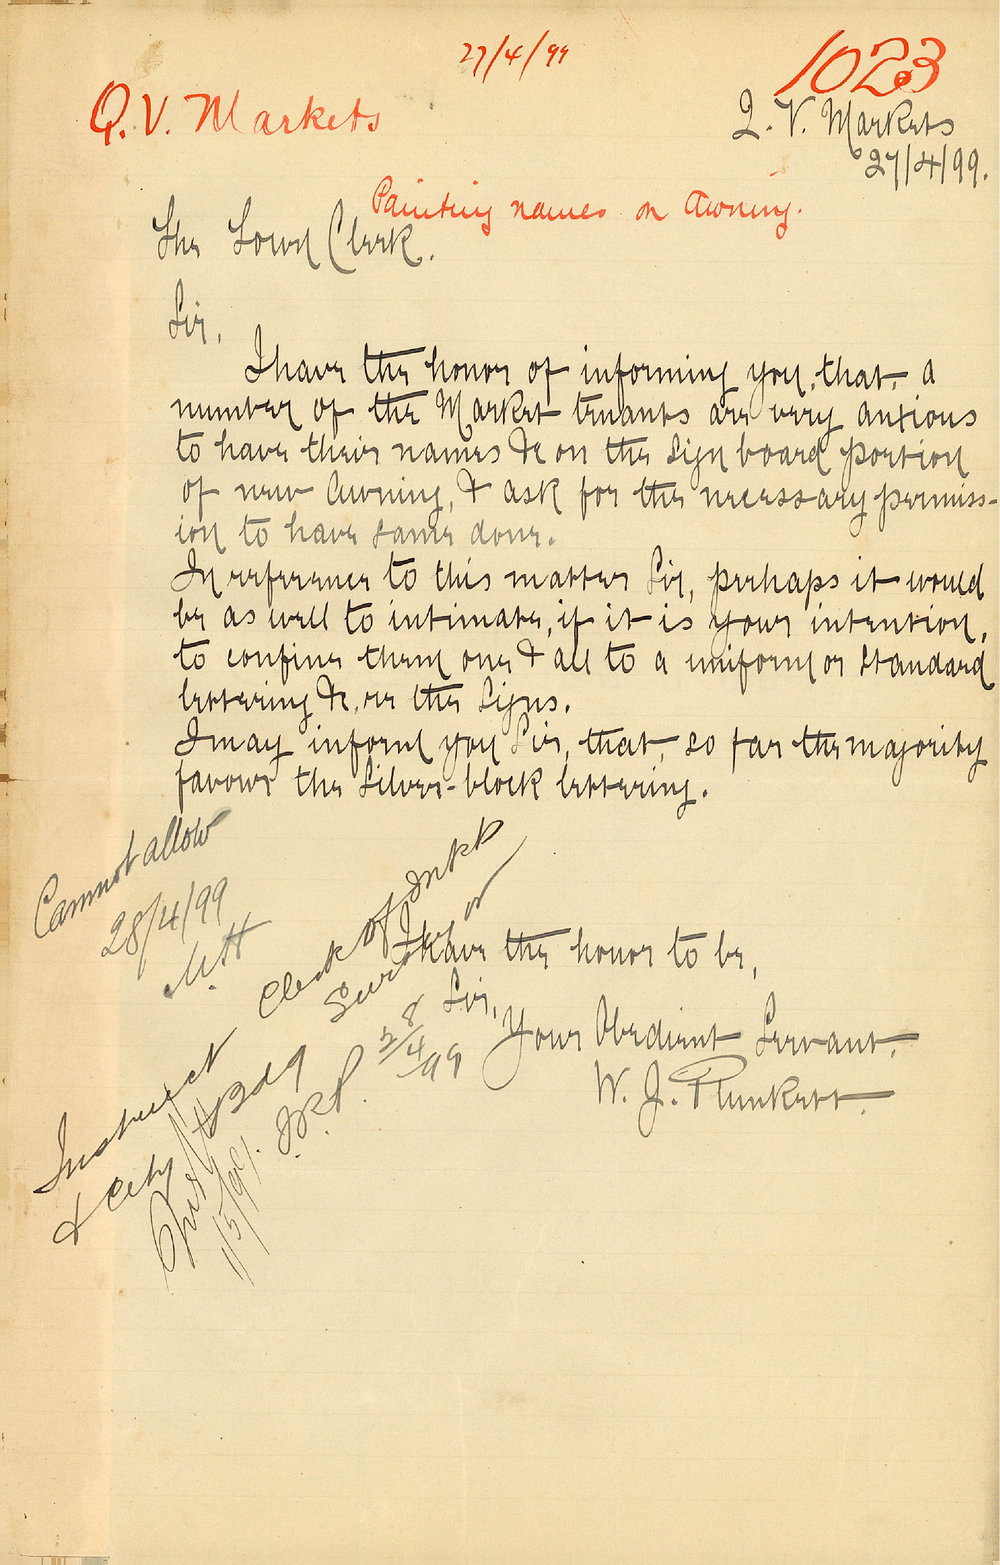 27/4/99
1023
Q. V. Markets
Q. V. Markets
27/4/99.
Painting names on Awning.
The Town Clerk.
Sir,
I have the honor of informing you, that, a
number of the Market tenants are very anxious
to have their names &c on the sign board portion
of new Awning, & ask for the necessary permiss-
ion to have same done.
In reference to this matter Sir, perhaps it would
be as well to intimate, if it is your intention,
to confine them one & all to a uniform or standard
lettering &c, re the signs.
I may inform you Sir, that, so far the majority
favour the Silver-block lettering.
I have the honor to be,
Sir,
Your Obedient Servant,
W. J. Plunkett.
Cannot allow
28/4/99
Instruct Clerk of Mkt
& City Bdg Surveyor
28/4/99
1/5/99.